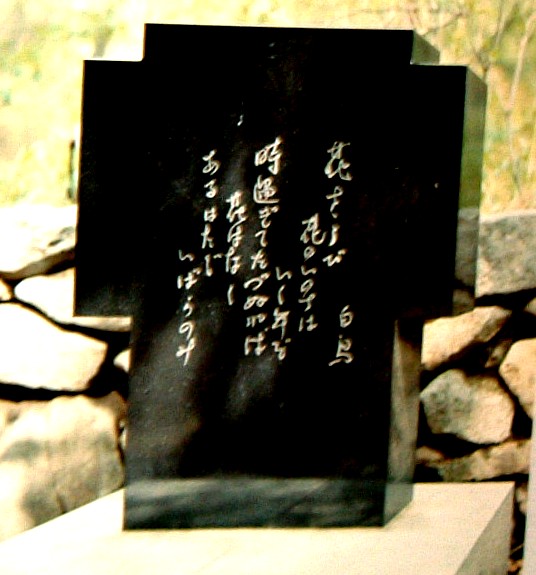 花さうび 白鳥
花のいのちは
いく年ぞ
時過ぎてたづぬれば
花はなく
あるはただ
いばらのみ